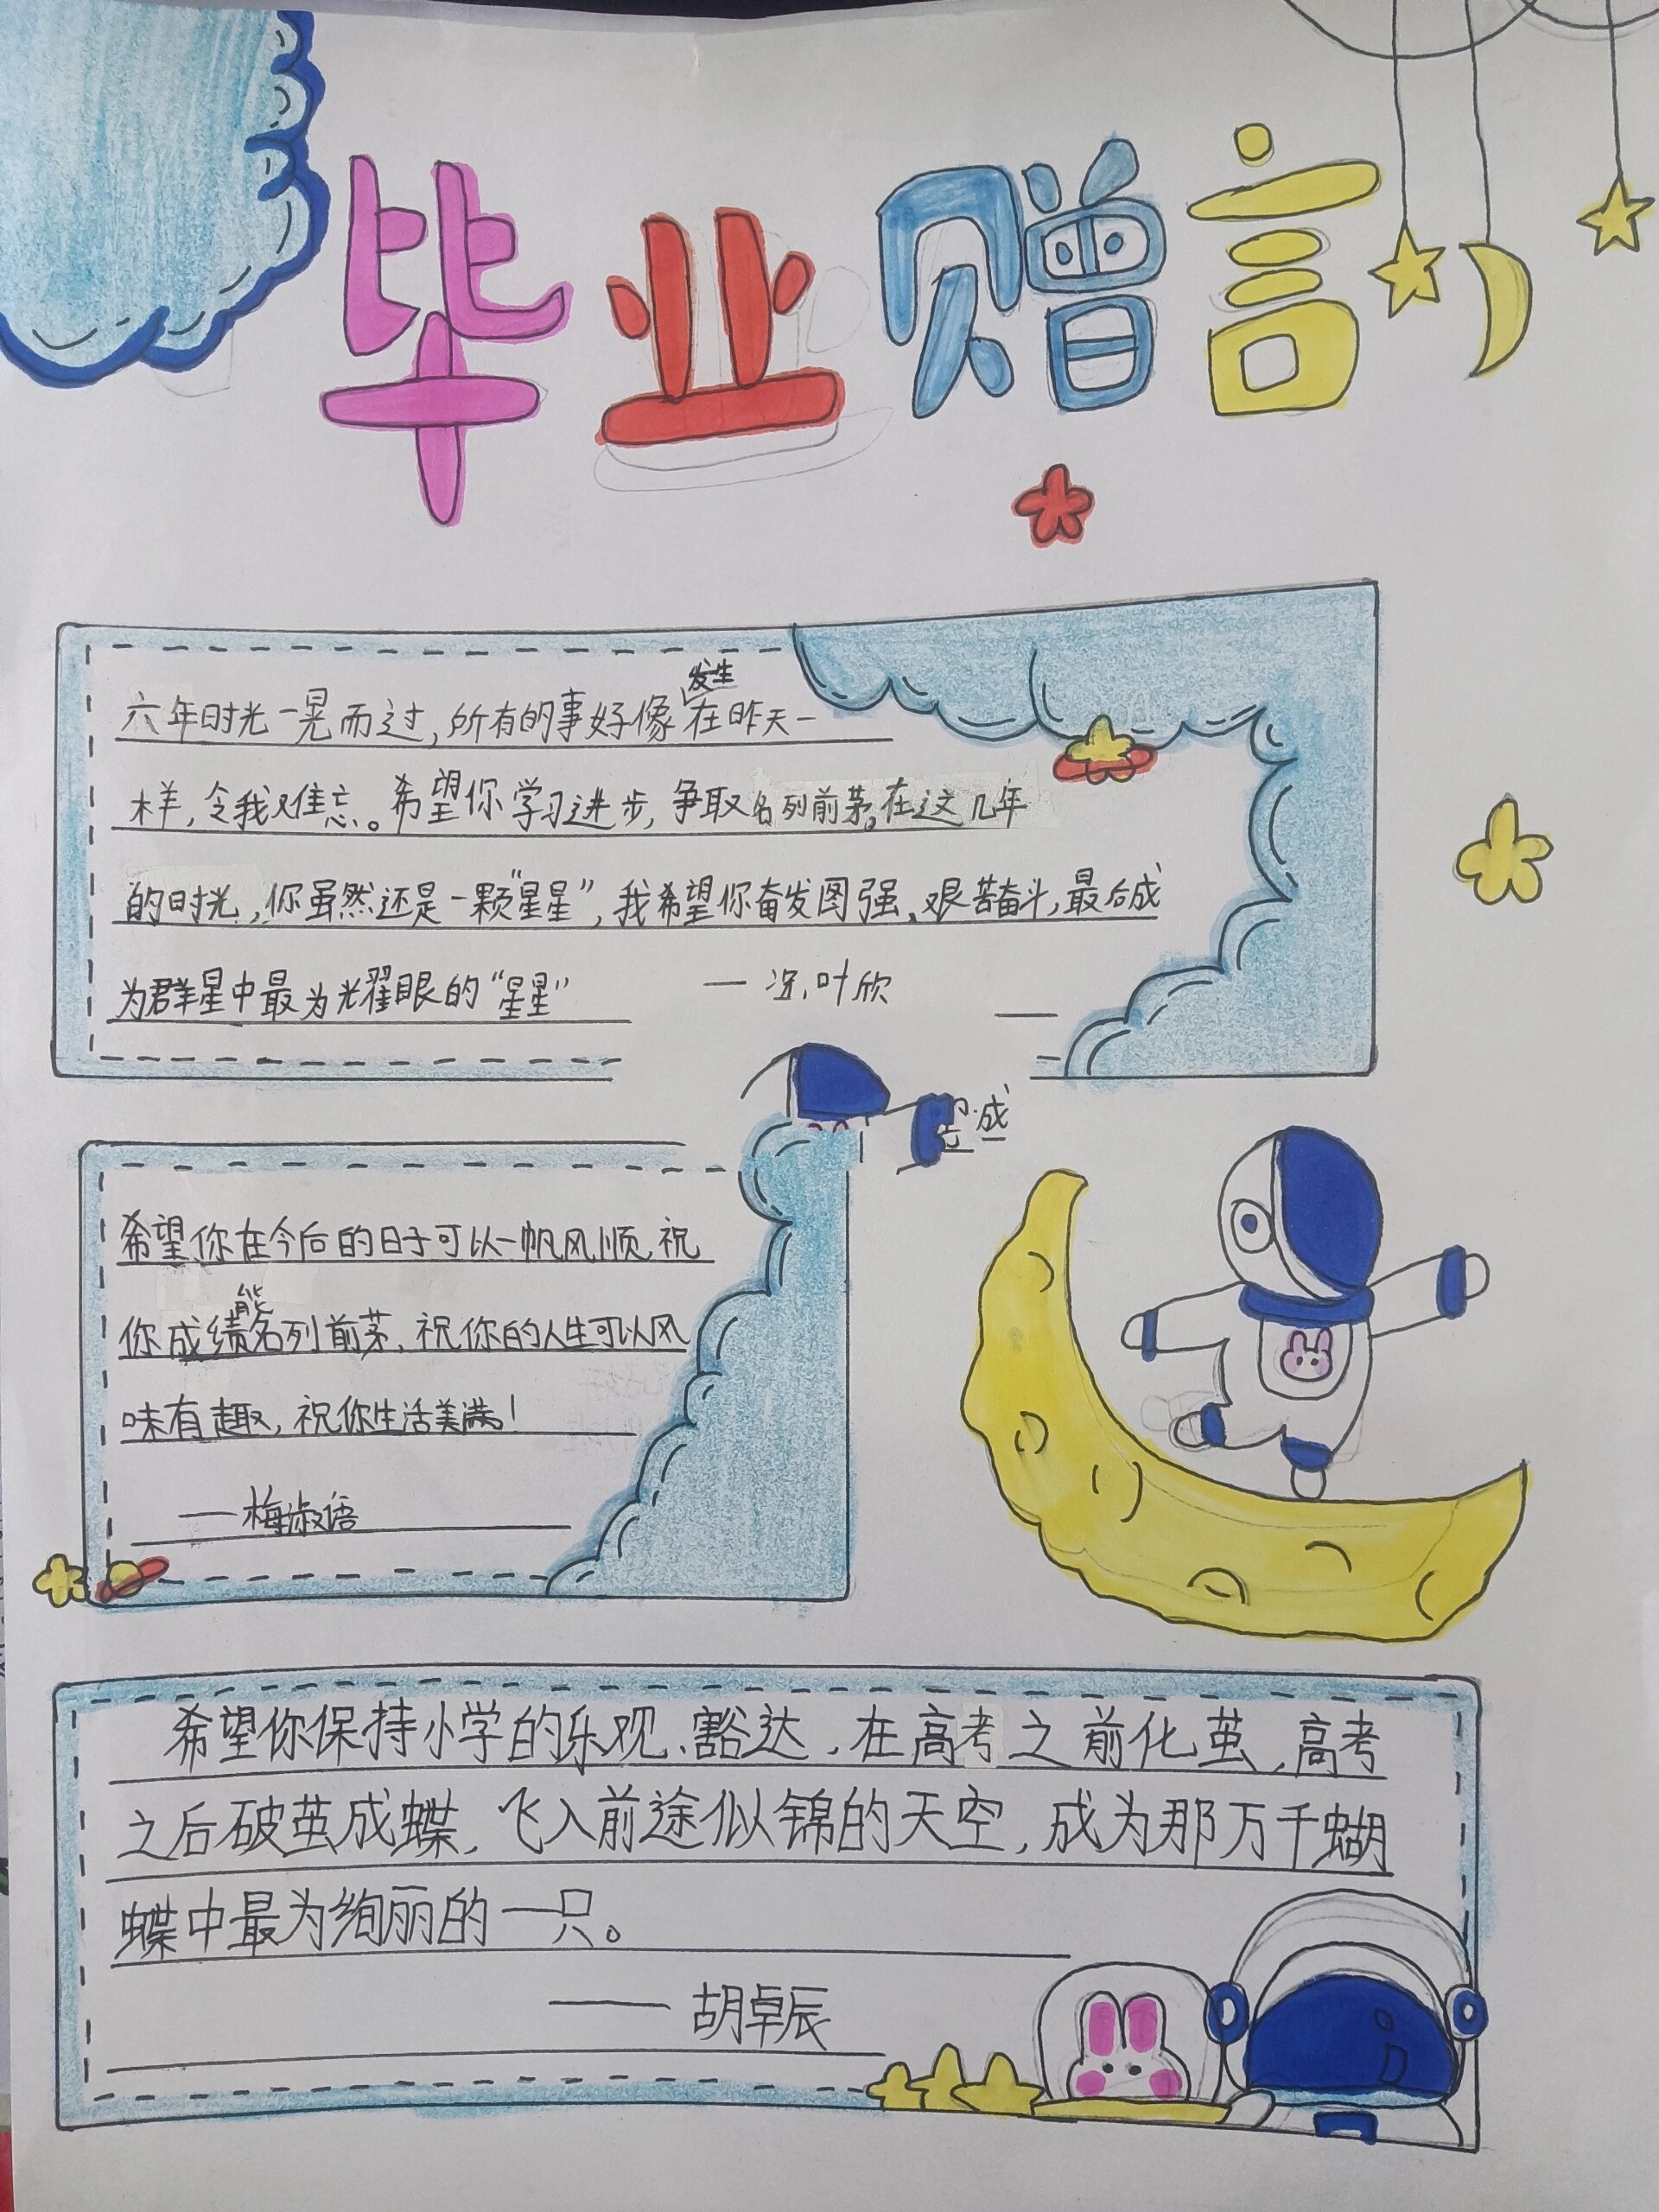 毕业赠言
六年时光一晃而过，所有的事好像发生在昨天一
样，令我难忘。希望你学习进步，争取名列前茅。在这几年
的时光，你虽然还是一颗“星星”，我希望你奋发图强、艰苦奋斗，最后成
为群星中最为光耀眼的“星星”
— 叶欣
成
希望你在今后的日子可以一帆风顺，祝
你成绩能名列前茅，祝你的人生可以风
味有趣，祝你生活美满！
——梅淑语
希望你保持小学的乐观、豁达，在高考之前化茧，高考
之后破茧成蝶，飞入前途似锦的天空，成为那万千蝴
蝶中最为绚丽的一只。
——胡卓辰